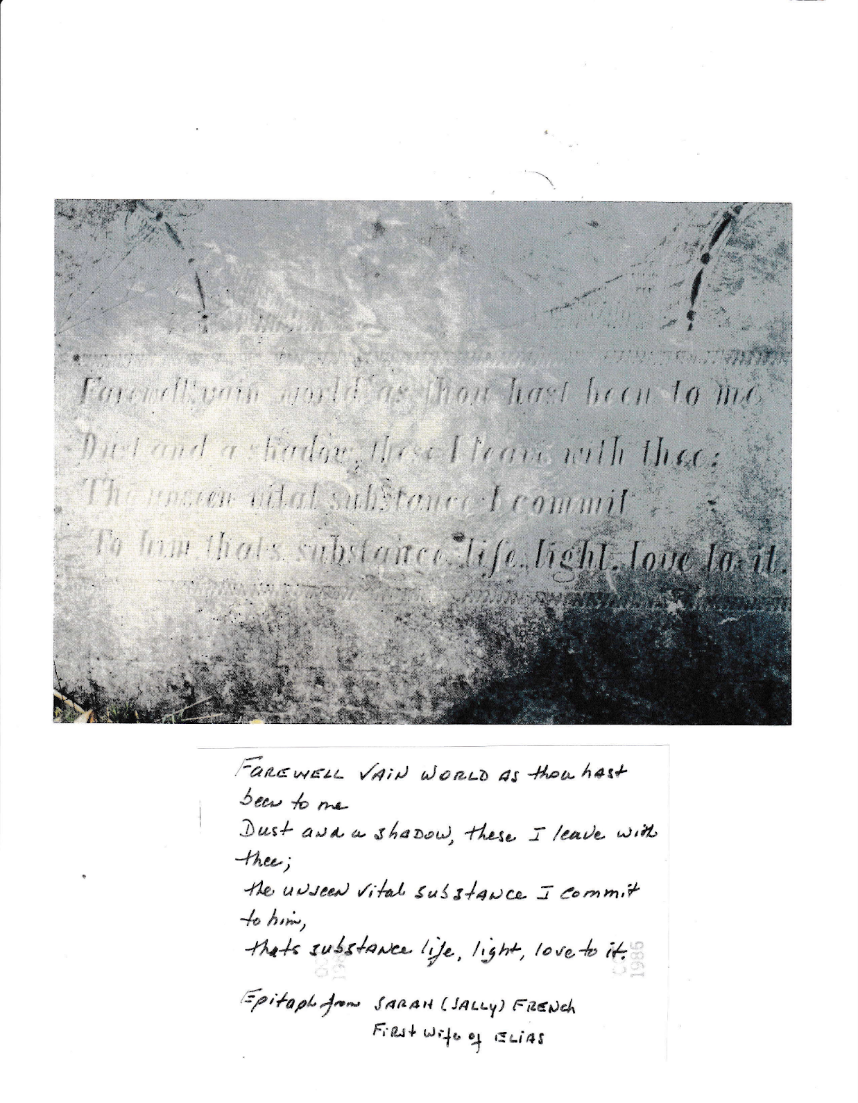 Farewell vain world as thou hast been to me
Dust and a shadow, these I leave with thee;
The unseen vital substance I commit
To him that's substance, life, light, love to it.
FAREWELL VAIN WORLD AS thou hast
been to me
Dust and a shadow, these I leave with
thee;
the unseen vital substance I commit
to him,
thats substance life, light, love to it.
Epitaph from SARAH (SALLY) FRENCH
First wife of ELIAS
1986